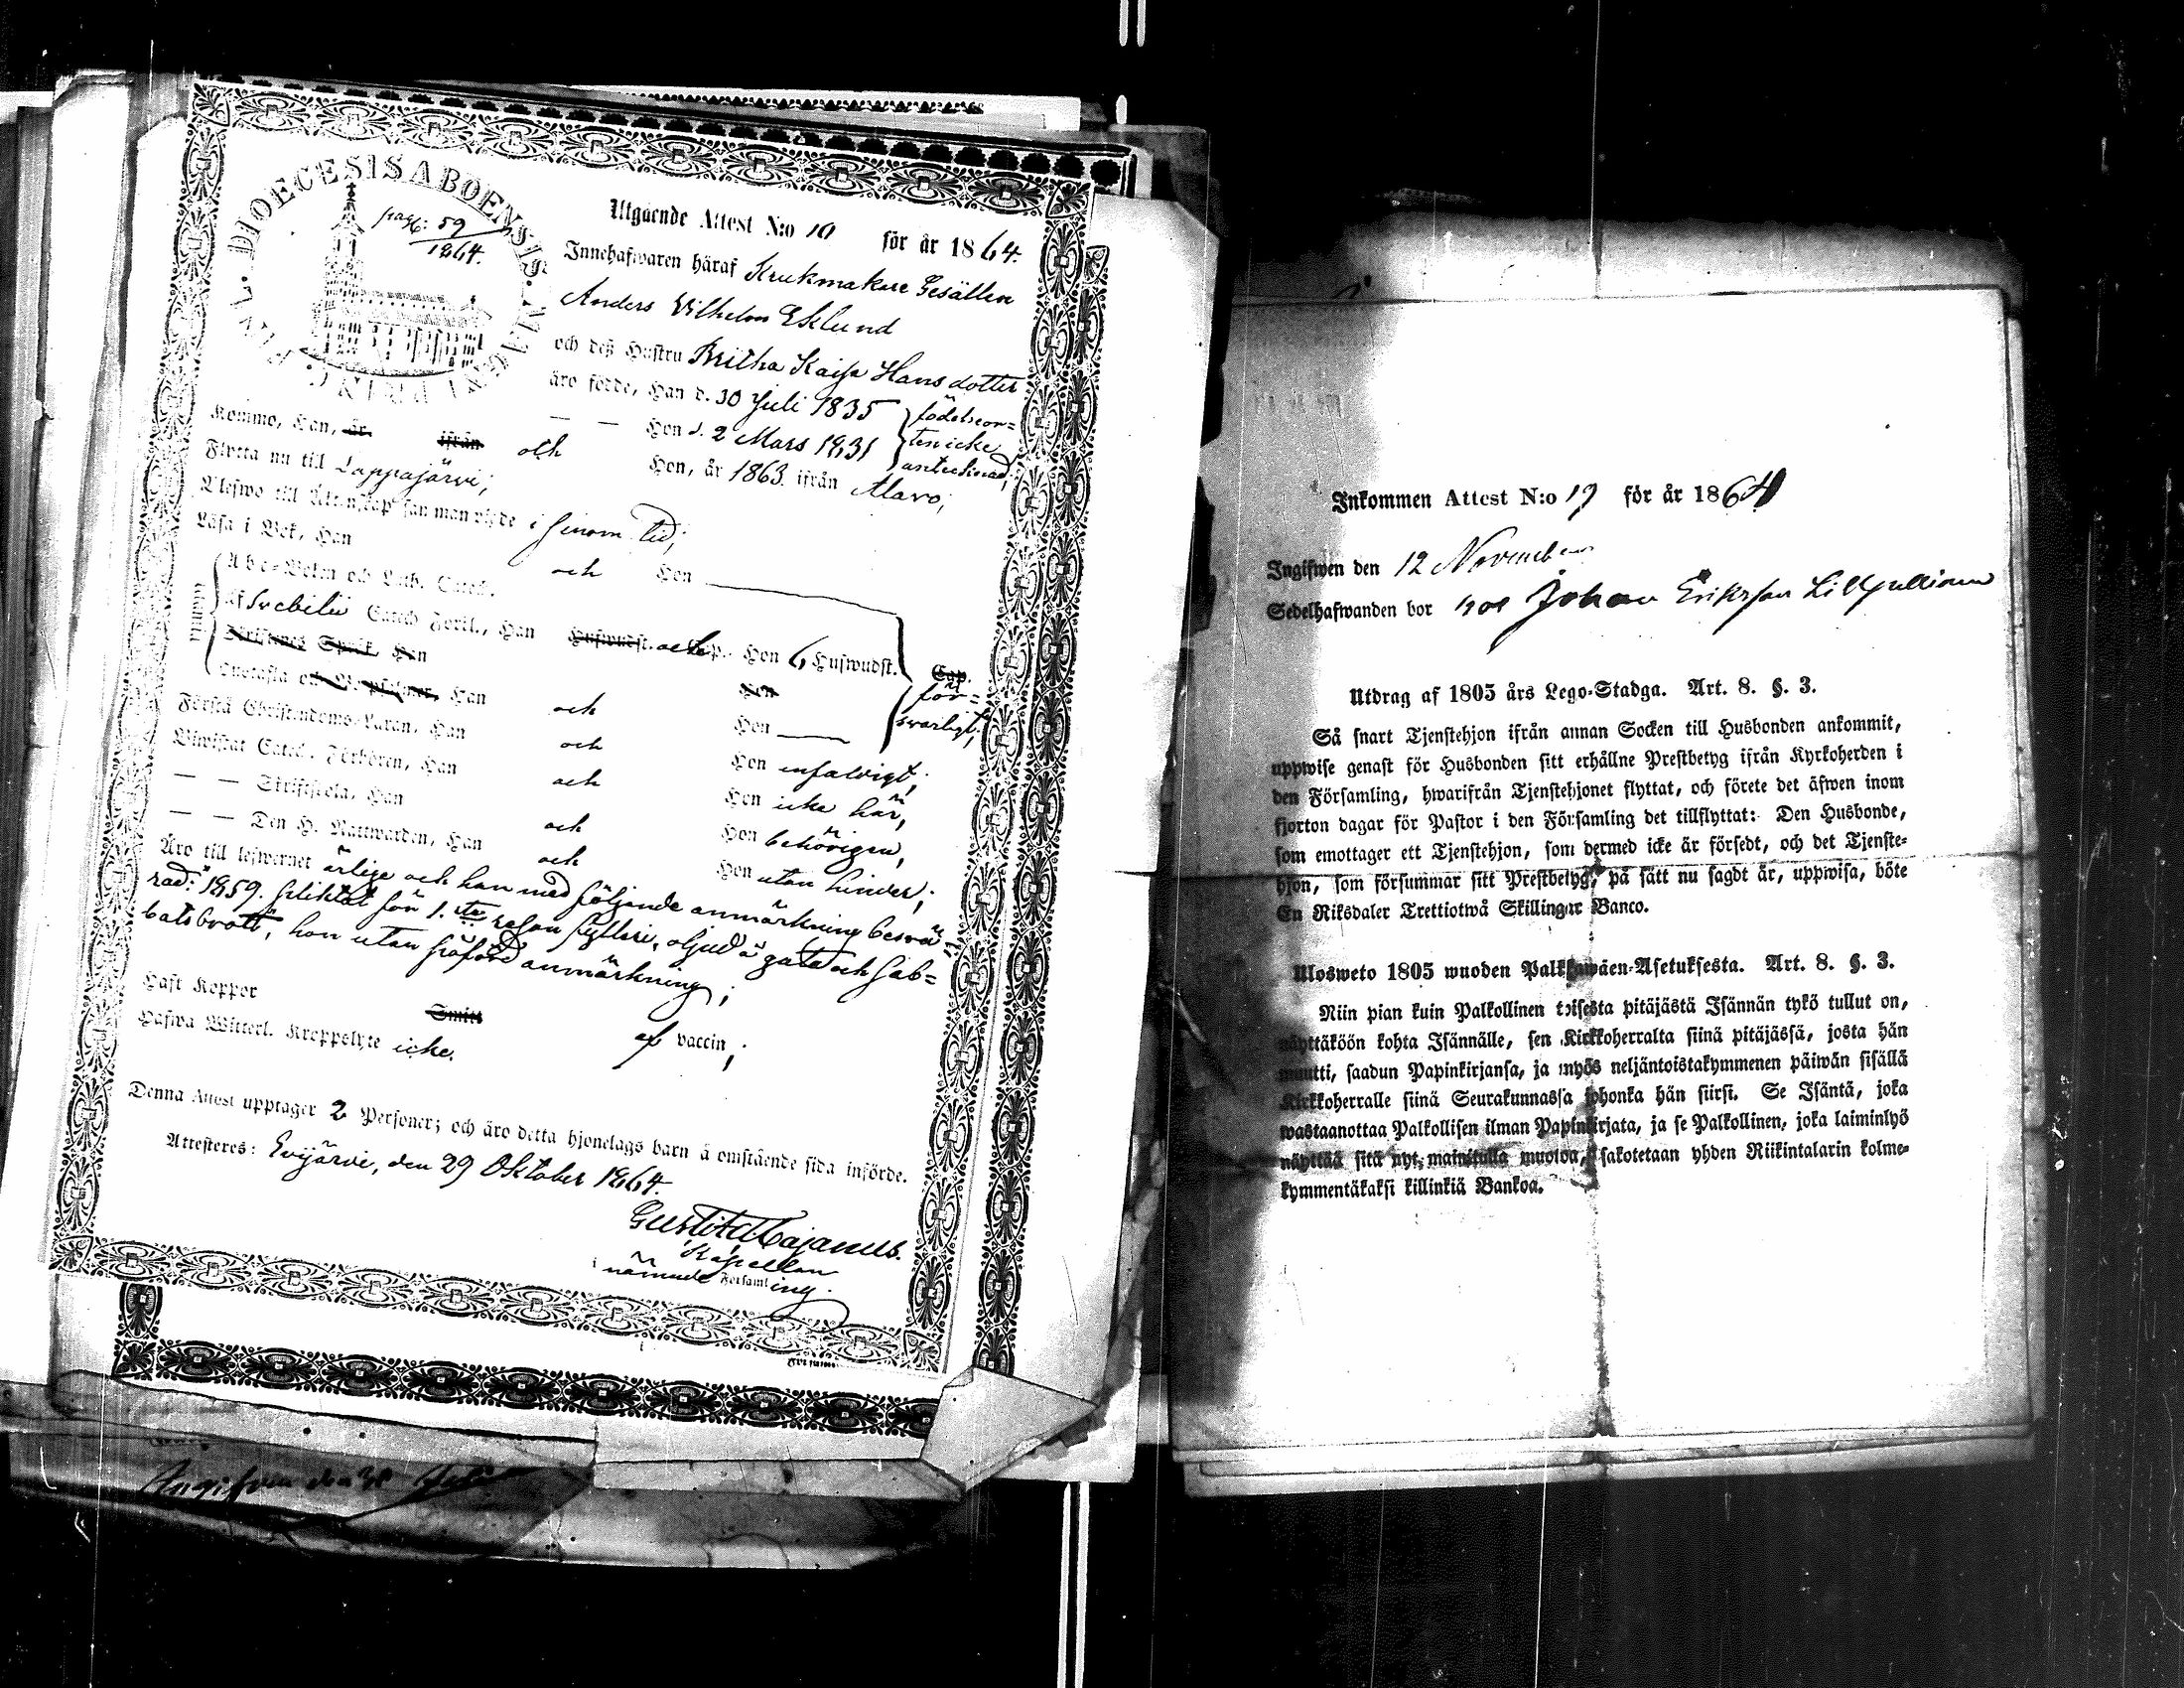 DIOECESIS ABOENSIS
pag: 59
1864.
Utgående Attest N:o 10 för år 1864.
Innehafwaren häraf Krukmakare Gesällen
Anders Vilhelm Eklund
och deß Hustru Britha Kaisa Hansdotter
äro födde, Han d. 30 Juli 1835 födelseor=
— — Hon d. 2 Mars 1831 ten icke
antecknad;
Komme, Han, år ifrån och Hon, år 1863 ifrån Alavo;
Flytta nu till Lappajärvi;
i sinom tid;
Läsa i Bok, Han och Hon
Abc-Bokm och Luth. Catech.
af Svebilii Catech Förkl., Han Hufwudst. och Cap. Hon 6 Hufwudst. Cap.
Skriftenes Språk, Han Hon för=
Han och Hon svarligt;
Förstå Christendoms-Läran, Han och Hon enfaldigt;
Biwistat Catech. Förhören, Han och Hon icke här,
— — Skriftskola, Han och Hon behörigen,
— — Den H. Nattwarden, Han och Hon utan hinder;
Äro till lefwernet ärlige och han med följande anmärkning besvä=
rad: 1859. pliktat för 1.sta resan fylleri, oljud å gata och sab=
batsbrott; hon utan införd anmärkning;
Haft Koppor Smitt af vaccin;
Hafwa Witterl. Kroppslyte icke.
Denna Attest upptager 2 Personer; och äro detta hjonelags barn å omstående sida införde.
Attesteres: Evijärvi, den 29 Oktober 1864.
Gust. Ad. Cajanus.
Kapellan
i nämnde Församling.
Ingifven den 30 Juli
Inkommen Attest N:o 19 för år 1864
Ingifwen den 12 November
Sedelhafwanden bor hos Johan Eriksson
Utdrag af 1805 års Lego-Stadga. Art. 8. §. 3.
Så snart Tjenstehjon ifrån annan Socken till Husbonden ankommit,
uppwise genast för Husbonden sitt erhållne Prestbetyg ifrån Kyrkoherden i
den Församling, hwarifrån Tjenstehjonet flyttat, och förete det äfwen inom
fjorton dagar för Pastor i den Församling det tillflyttat: Den Husbonde,
som emottager ett Tjenstehjon, som dermed icke är försedt, och det Tjenste-
hjon, som försummar sitt Prestbetyg, på sätt nu sagdt är, uppwisa, böte
En Riksdaler Trettiotwå Skillingar Banco.
Ulosweto 1805 wuoden Palkkawäen-Asetuksesta. Art. 8. §. 3.
Niin pian kuin Palkollinen toisesta pitäjästä Isännän tykö tullut on,
näyttäköön kohta Isännälle, sen Kirkkoherralta siinä pitäjässä, josta hän
muutti, saadun Papinkirjansa, ja myös neljäntoistakymmenen päiwän sisällä
Kirkkoherralle siinä Seurakunnassa johonka hän siirsi. Se Isäntä, joka
wastaanottaa Palkollisen ilman Papinkirjata, ja se Palkollinen, joka laiminlyö
näyttää sitä nyt mainitulla muotoa, sakotetaan yhden Riikintalarin kolme-
kymmentäkaksi killinkiä Bankoa.